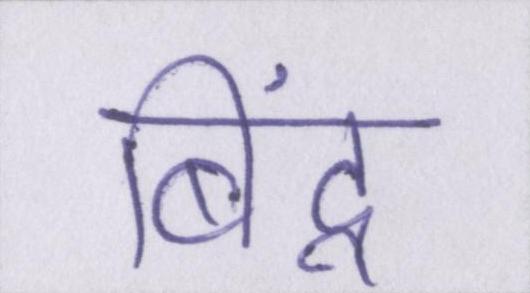 बिंदू